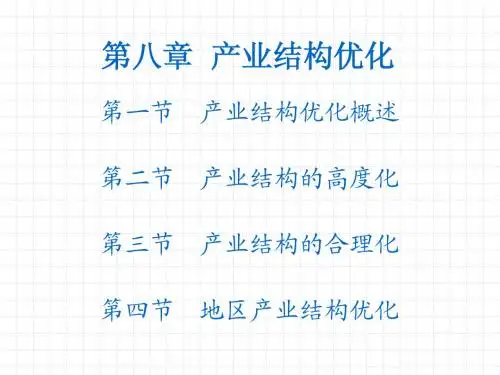 第八章 产业结构优化
第一节 产业结构优化概述
第二节 产业结构的高度化
第三节 产业结构的合理化
第四节 地区产业结构优化